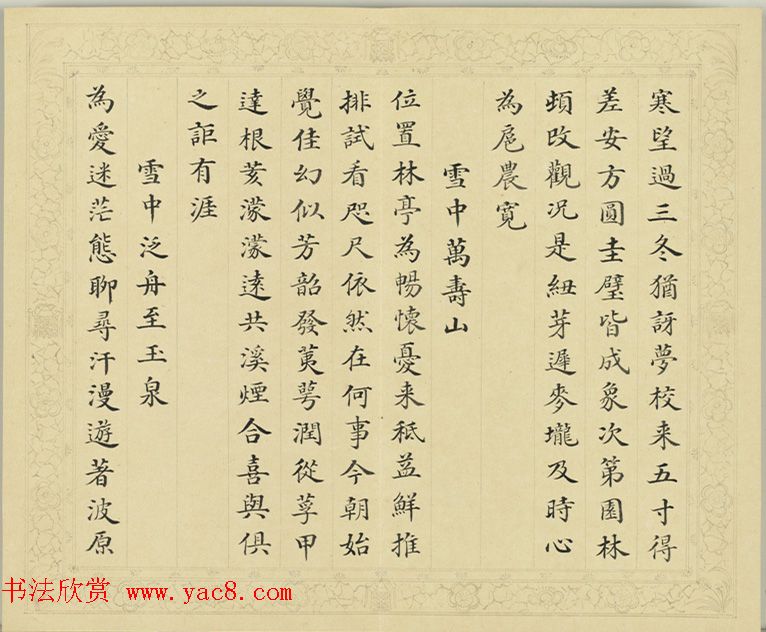 寒望過三冬猶訝夢校来五寸得
差安方圓圭璧皆成象次第園林
頓改觀况是紐芽遲麥壠及時心
為扈農寬
雪中萬壽山
位置林亭為暢懷憂来秪益鮮推
排試看咫尺依然在何事今朝始
覺佳幻似芳韶發荑萼潤從莩甲
達根荄濛濛逺共溪煙合喜與俱
之詎有涯
雪中泛舟至玉泉
為愛迷茫態聊尋汗漫遊著波原
书法欣赏 www.yac8.com